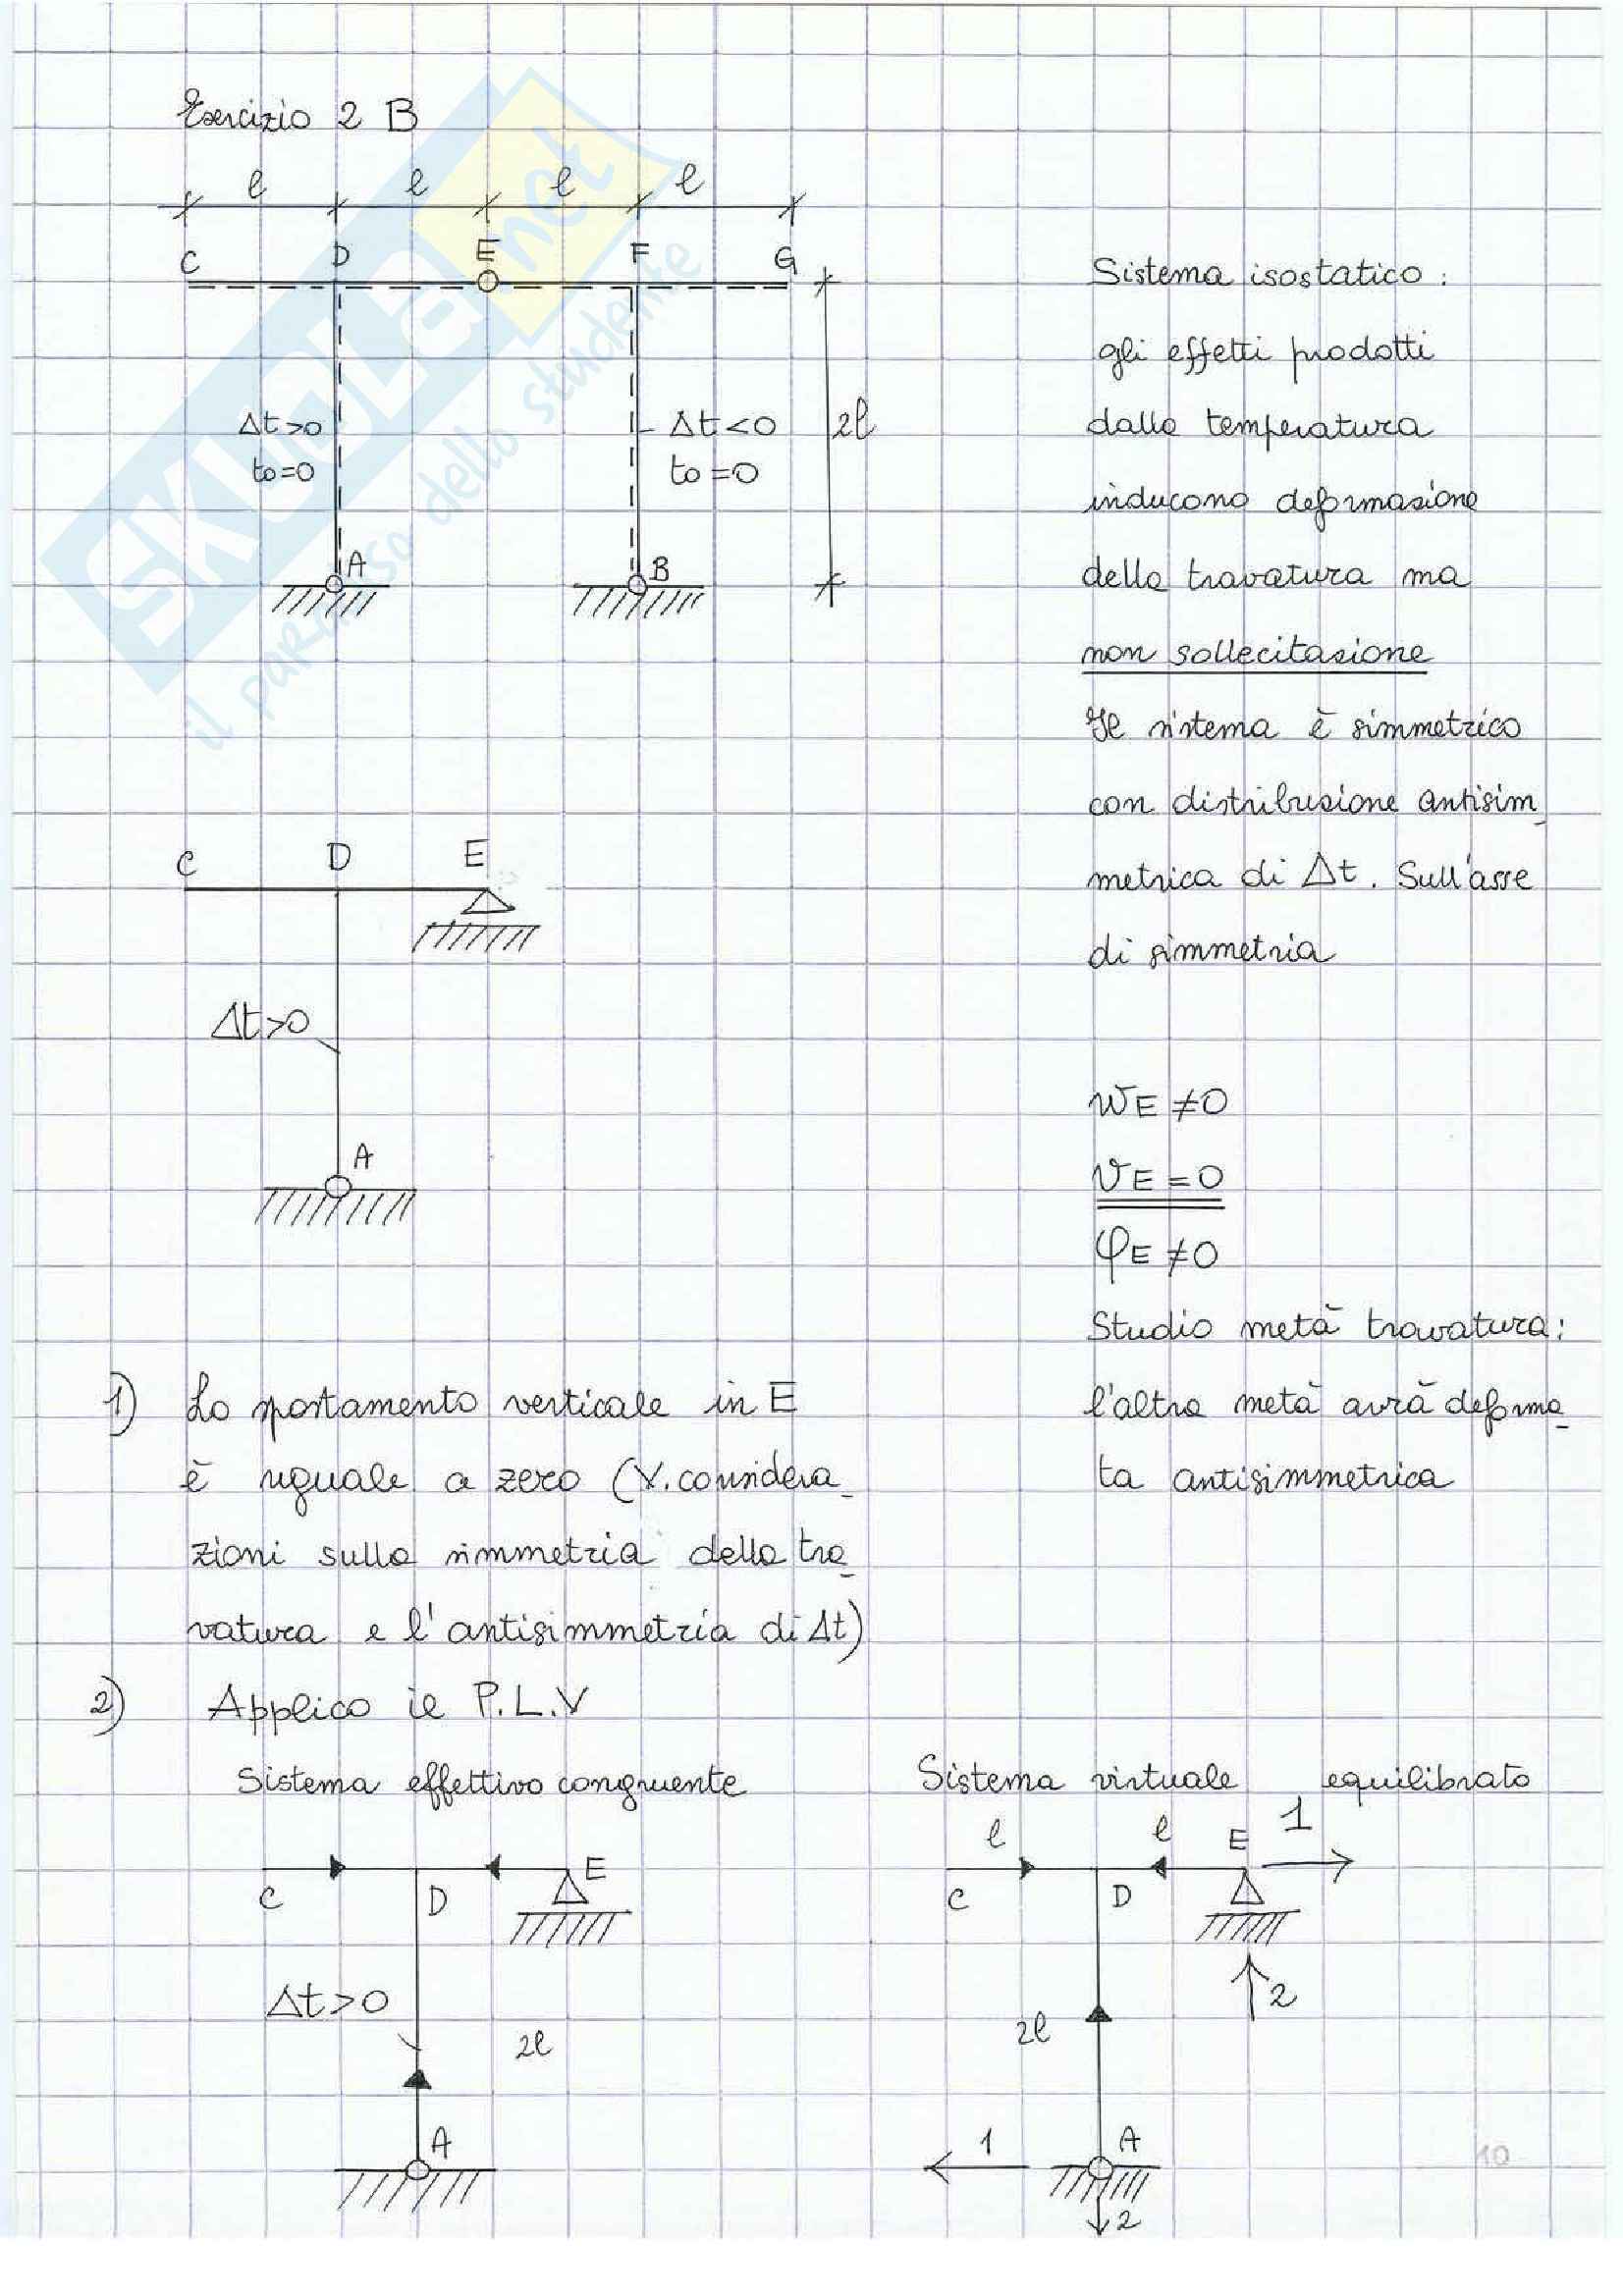 Esercizio 2 B
l l l l
C D E F G
Δt>0
to=0
Δt<0
to=0
2l
A B
Sistema isostatico :
gli effetti prodotti
dalla temperatura
inducono deformazione
della travatura ma
non sollecitazione
Il sistema è simmetrico
con distribuzione antisim_
metrica di Δt. Sull'asse
di simmetria
C D E
Δt>0
A
wE ≠0
vE =0
φE ≠0
Studio metà travatura:
l'altra metà avrà deforma_
ta antisimmetrica
1) Lo spostamento verticale in E
è uguale a zero (V. considera_
zioni sulla simmetria della tra_
vatura e l'antisimmetria di Δt)
2) Applico il P.L.V
Sistema effettivo congruente
Sistema virtuale equilibrato
C D E
Δt>0
2l
A
l l E 1
C D
2
2l
1 A
2
10
SKUOLA.net
il paradiso dello studente